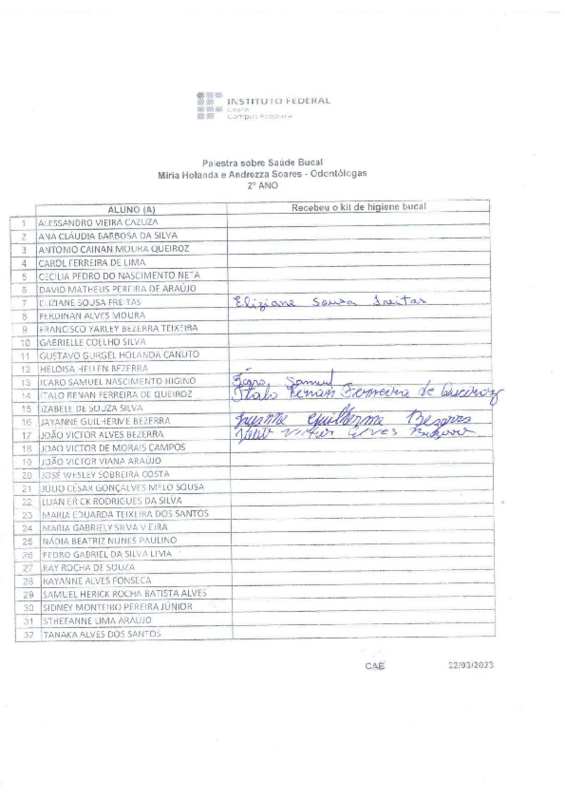 INSTITUTO FEDERAL
Ceará
Campus Acopiara
Palestra sobre Saúde Bucal
Míria Holanda e Andrezza Soares - Odontólogas
2º ANO
ALUNO (A) Recebeu o kit de higiene bucal
1 ALESSANDRO VIEIRA CAZUZA
2 ANA CLÁUDIA BARBOSA DA SILVA
3 ANTONIO CAINAN MOURA QUEIROZ
4 CAROL FERREIRA DE LIMA
5 CECÍLIA PEDRO DO NASCIMENTO NETA
6 DAVID MATHEUS PEREIRA DE ARAÚJO
7 ELIZIANE SOUSA FREITAS Eliziane Sousa Freitas
8 FERDINAN ALVES MOURA
9 FRANCISCO YARLEY BEZERRA TEIXEIRA
10 GABRIELLE COELHO SILVA
11 GUSTAVO GURGEL HOLANDA CANUTO
12 HELOISA HELLEN BEZERRA
13 ICARO SAMUEL NASCIMENTO HIGINO Ícaro Samuel
14 ITALO RENAN FERREIRA DE QUEIROZ Italo Renan Ferreira de Queiroz
15 IZABELE DE SOUZA SILVA
16 JAYANNE GUILHERME BEZERRA Jayanne Guilherme Bezerra
17 JOÃO VICTOR ALVES BEZERRA João Victor Alves Bezerra
18 JOAO VICTOR DE MORAIS CAMPOS
19 JOÃO VICTOR VIANA ARAÚJO
20 JOSÉ WESLEY SOBREIRA COSTA
21 JÚLIO CÉSAR GONÇALVES MELO SOUSA
22 LUAN ERICK RODRIGUES DA SILVA
23 MARIA EDUARDA TEIXEIRA DOS SANTOS
24 MARIA GABRIELY SILVA VIEIRA
25 NÁDIA BEATRIZ NUNES PAULINO
26 PEDRO GABRIEL DA SILVA LIMA
27 RAY ROCHA DE SOUZA
28 RAYANNE ALVES FONSECA
29 SAMUEL HERICK ROCHA BATISTA ALVES
30 SIDNEY MONTEIRO PEREIRA JÚNIOR
31 STHEFANNE LIMA ARAÚJO
32 TANAKA ALVES DOS SANTOS
CAE 22/03/2023